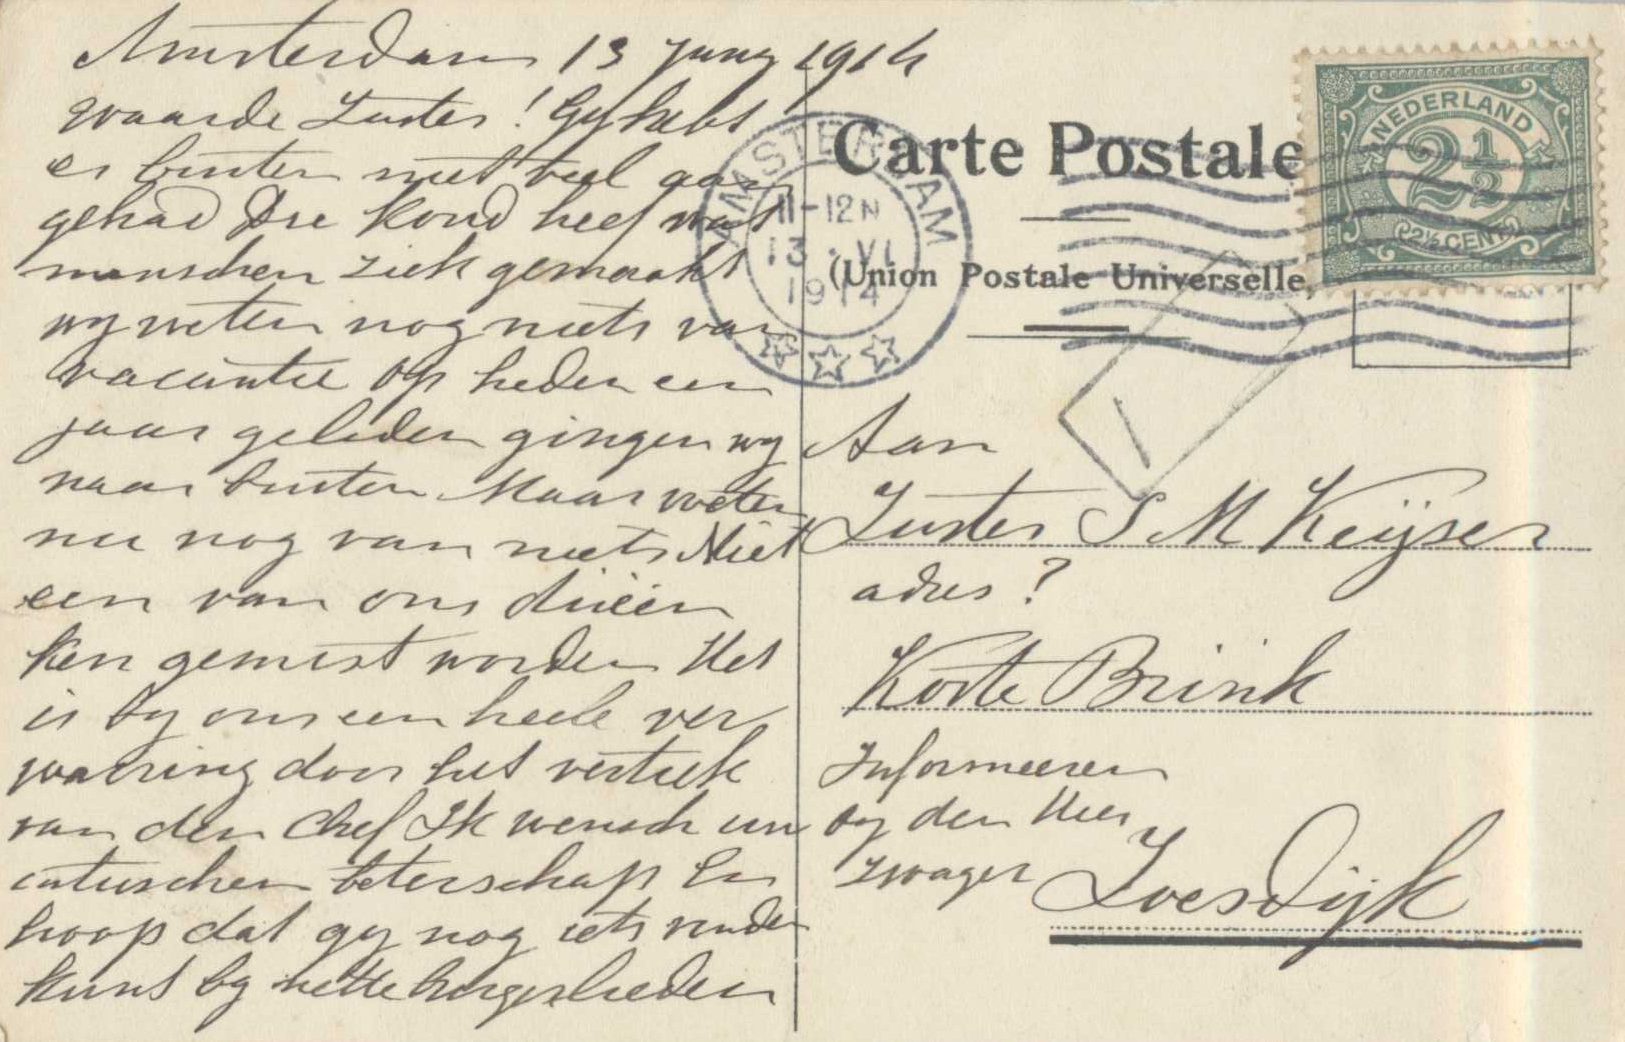 Amsterdam 13 Juny 1914
waarde Zuster! Gy hebt
er buiten niet veel aan
gehad Die koud heef wat
menschen ziek gemaakt
wy weten nog niets van
vacantie op heden een
jaar geleden gingen wy
naar buiten Maar weten
nu nog van niets Niet
een van ons drieën
ken gemist worden Het
is by ons een heele ver
warring door het vertrek
van den Chef Ik wensch un
intusschen beterschap En
hoop dat gy nog iets vinden
kunt by nette burgerlieden
Carte Postale
(Union Postale Universelle,
NEDERLAND
2½
2½ CENT
AMSTERDAM
11-12 N
13 · VI
1914
1
Aan
Zuster S M Keijser
adres ?
Korte Brink
Informeeren
by den Heer
Zwager
Zoesdijk